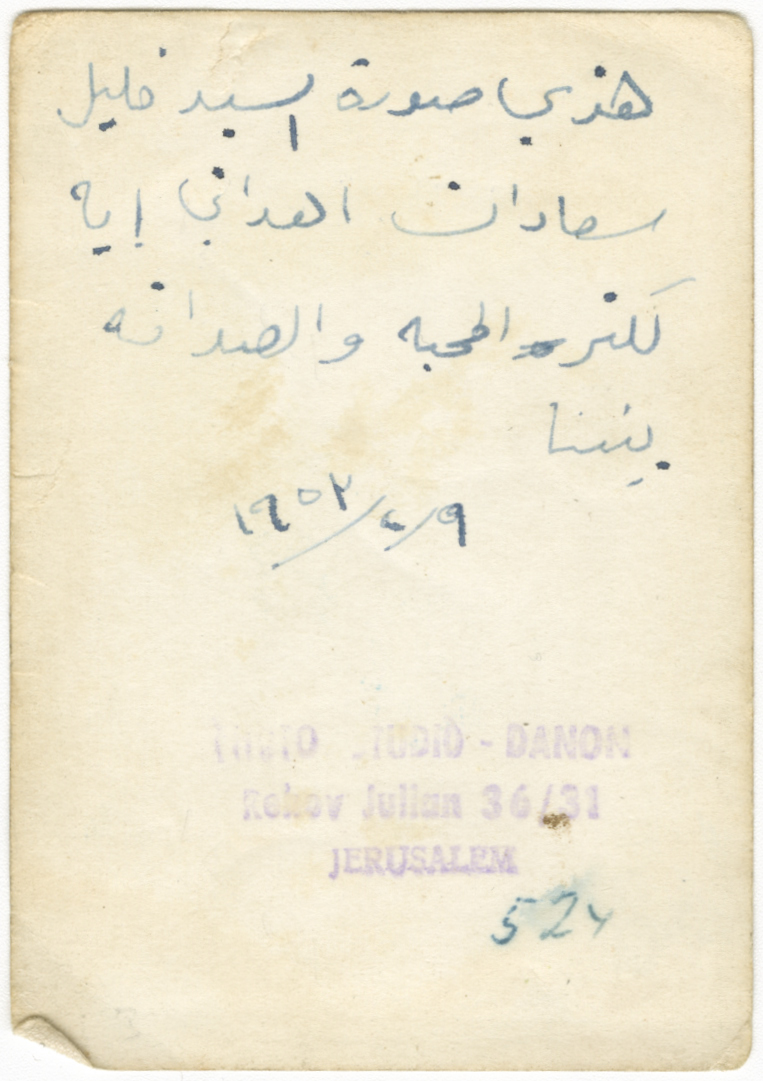 هذي صورة السيد خليل
سعادات اهداني إياه
لكثر المحبه والصداقه
بيننا
١٩٥٢/٤/٩
STUDIO - DANON
Rehov Julian 36/31
JERUSALEM
524